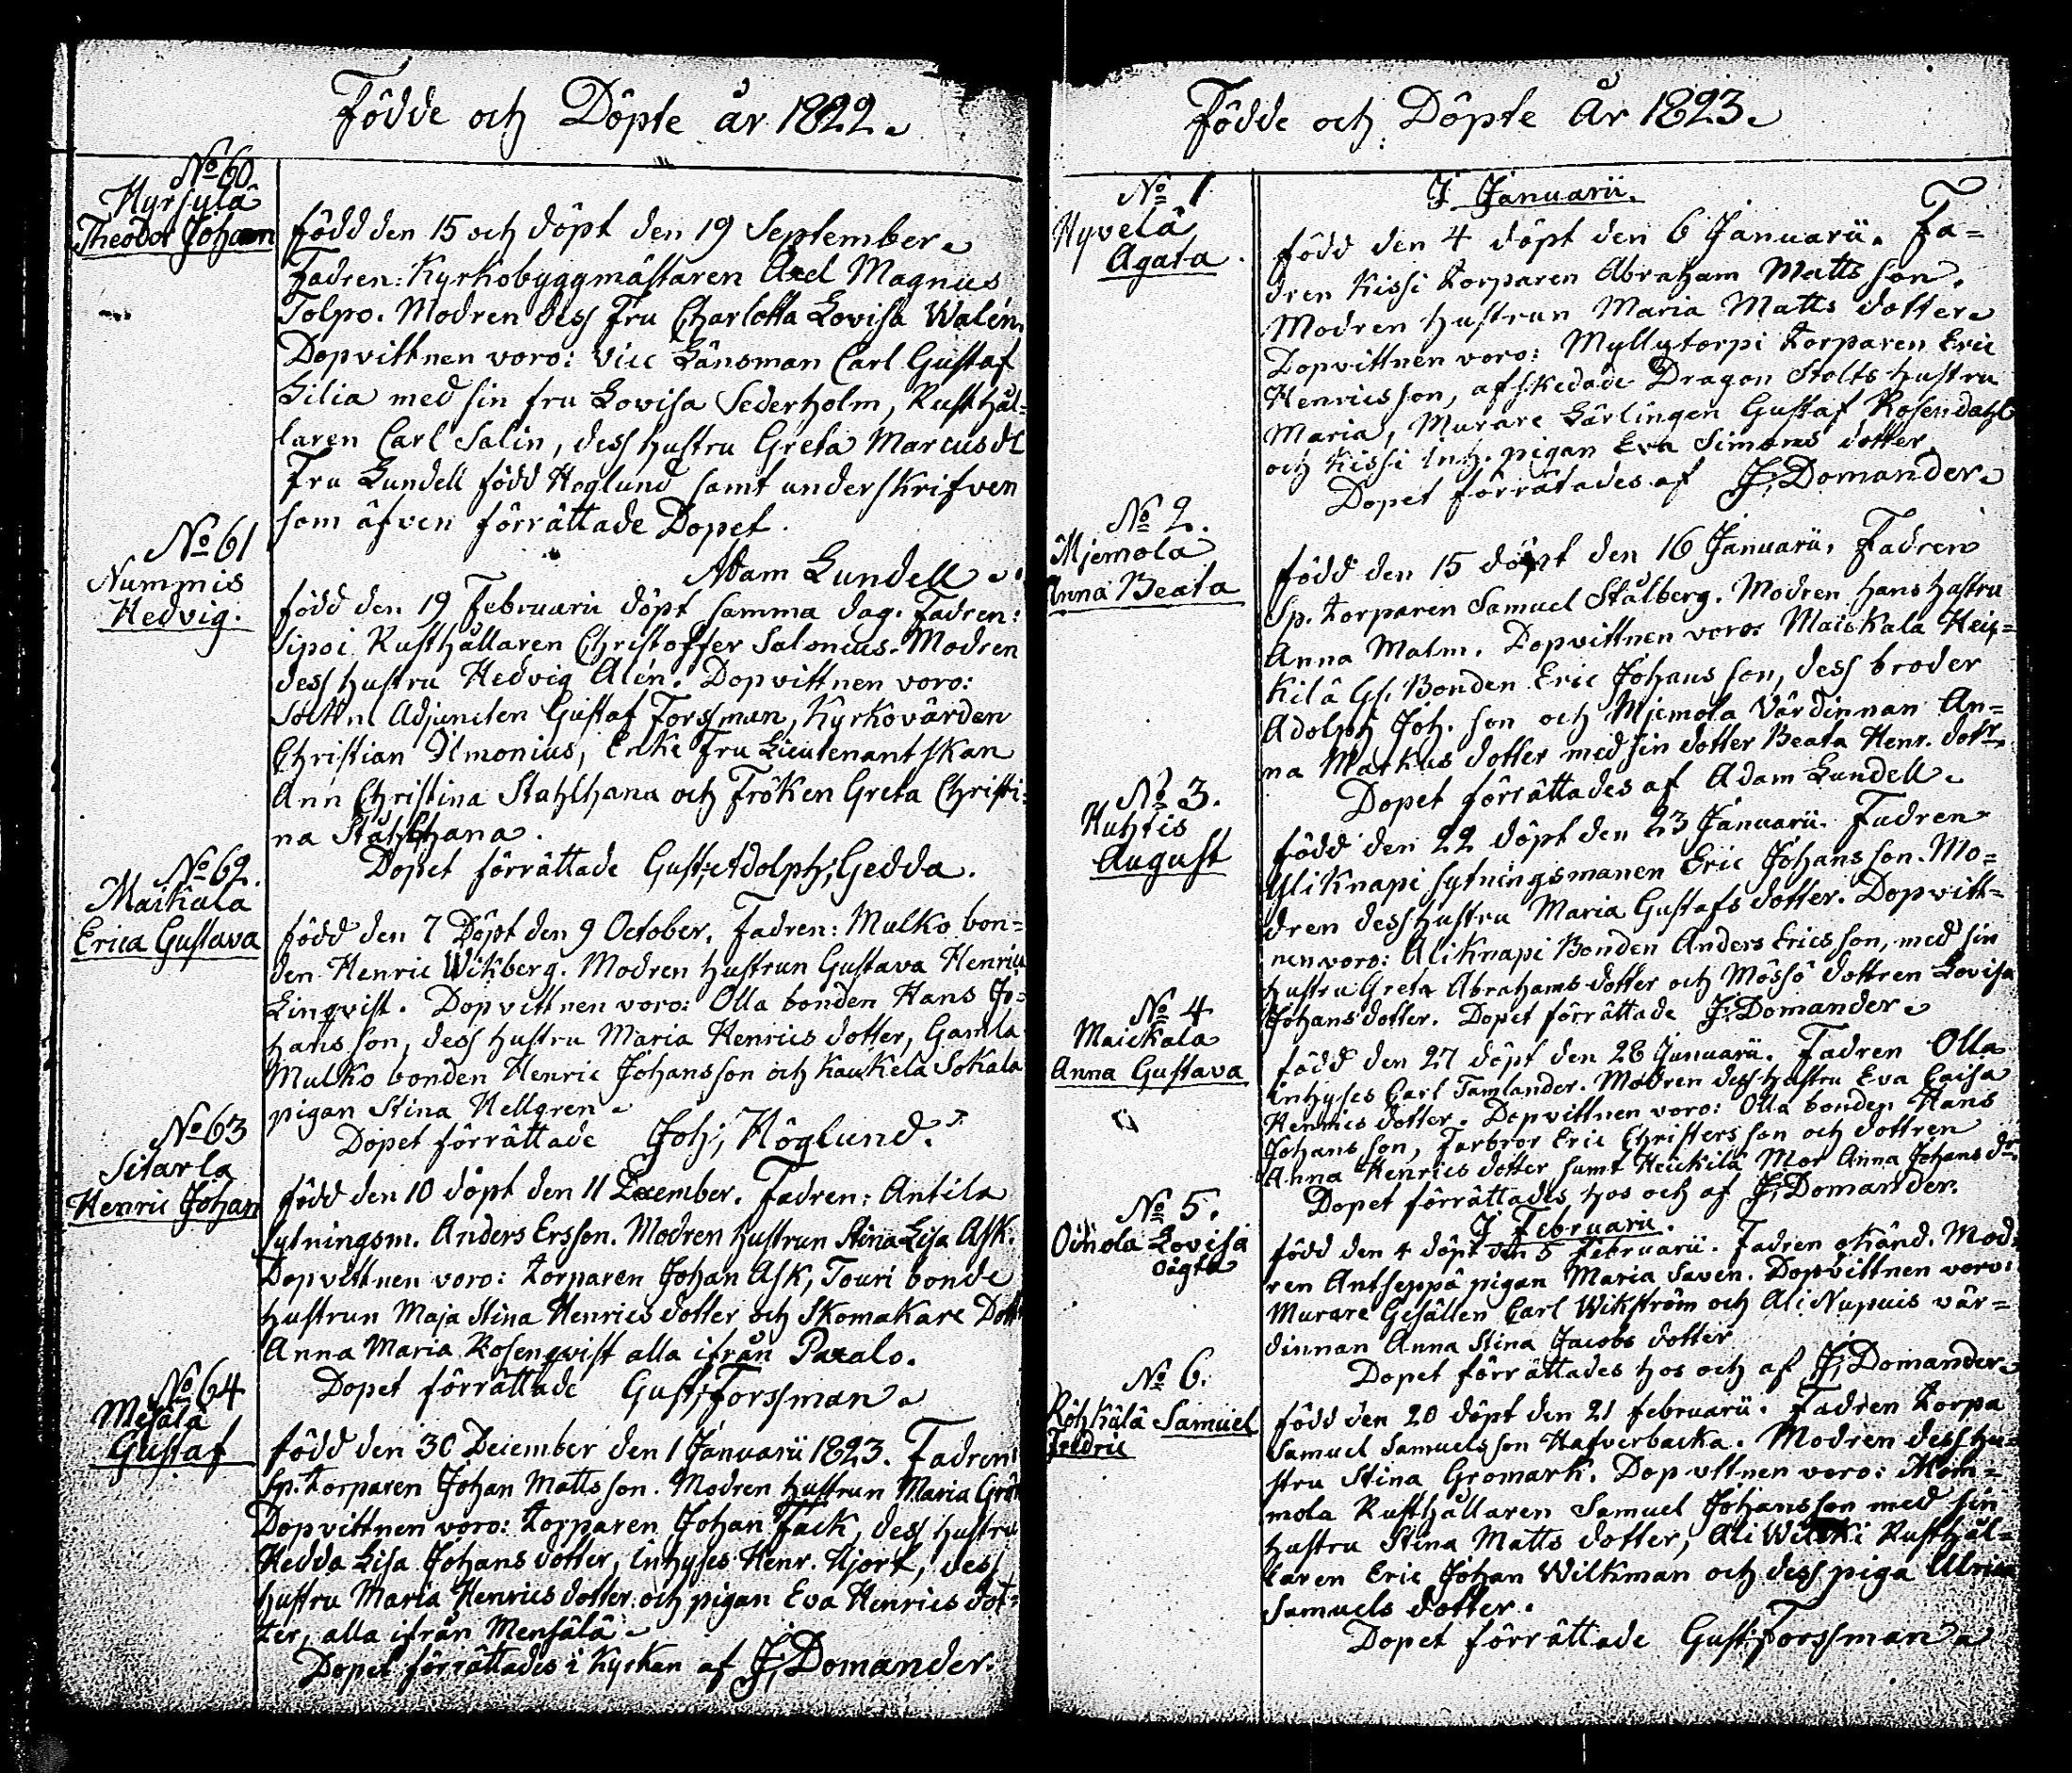 Födde och Döpte år 1822.
No 60
Hyrsylä
Theodor Johan
född den 15 och döpt den 19 September.
Fadren: Kyrkobyggmästaren Axel Magnus
Tolpo. Modren dess Fru Charlotta Lovisa Walén.
Dopvittnen voro: Vice Länsman Carl Gustaf
Gilia med sin fru Lovisa Sederholm, Rusthål-
laren Carl Salin, dess hustru Greta Marcus dr
Fru Lundell född Höglund samt underskrifven
som äfven förrättade Dopet.
Adam Lundell.
No 61
Nummis
Hedvig.
född den 19 Februarii döpt samma dag. Fadren:
Sipoi Rusthållaren Christoffer Salonius. Modren
dess hustru Hedvig Alén. Dopvittnen voro:
Sockn. Adjuncten Gustaf Forssman, Kyrkovärden
Christian Ilmonius, Enke Fru Lieutenantskan
Ann Christina Stahlhana och Fröken Greta Christi-
na Stahlhana.
Dopet förrättade Gust; Adolph; Gedda.
No 62.
Maikala
Erica Gustava
född den 7 Döpt den 9 October. Fadren: Mulko bon-
den Henric Wikberg. Modren hustrun Gustava Henric
Linqvist. Dopvittnen voro: Olla bonden Hans Jo-
hansson, dess hustru Maria Henrics dotter, Gamla
Mulko bonden Henric Johansson och Kaukela Sokala
pigan Stina Hellgren.
Dopet förrättade Joh; Höglund.
No 63
Sitarla
Henric Johan
född den 10 döpt den 11 December. Fadren: Antila
sytningsm. Anders Ersson. Modren hustrun Stina Lisa Ask.
Dopvittnen voro: torparen Johan Ask, Touri bonde
hustrun Maja Stina Henrics dotter och Skomakare Dott
Anna Maria Rosenqvist alla ifrån Paxalo.
Dopet förrättade Gust; Forssman.
No 64
Mesälä
Gustaf
född den 30 December den 1 Januarii 1823. Fadren:
Sp. torparen Johan Mattsson. Modren hustrun Maria Grön
Dopvittnen voro: torparen Johan Fack, dess hustru
Hedda Lisa Johans dotter, inhyses Henr. Hjort, dess
hustru Maria Henrics dotter och pigan Eva Henrics dot-
ter, alla ifrån Mensälä.
Dopet förrättades i Kyrkan af J; Domander.
Födde och Döpte År 1823.
I Januarii.
No 1
Hyvelä
Agata.
född den 4 döpt den 6 Januarii. Fa-
dren Kissi torparen Abraham Mattsson.
Modren hustrun Maria Matts dotter.
Dopvittnen voro: Myllytorpi torparen Eric
Henricsson, afskedade Dragon Stolts hustru
Maria, Murare Lärlingen Gustaf Rosendahl
och Kissi inh. pigan Eva Simons dotter.
Dopet förrätades af J; Domander.
No 2.
Mjemola
Anna Beata
född den 15 döpt den 16 Januarii. Fadren
Sp. torparen Samuel Stålberg. Modren hans hustru
Anna Malm. Dopvittnen voro: Maickala Heic-
kilä Gl. Bonden Eric Johansson, dess broder
Adolph Joh. son och Mjemola Värdinnan An-
na Markus dotter med sin dotter Beata Henr. dottr.
Dopet förrättades af Adam Lundell.
No 3.
Huhtis
August
född den 22 döpt den 23 Januarii. Fadren
Yliknapi sytningsmanen Eric Johansson. Mo-
dren dess hustru Maria Gustafs dotter. Dopvitt-
nen voro: Aliknapi Bonden Anders Ericsson, med sin
hustru Greta Abrahams dotter och Mössö dottren Lovisa
Johans dotter. Dopet förrättade J; Domander.
No 4
Maickala
Anna Gustava
född den 27 döpt den 28 Januarii. Fadren Olla
inhyses Carl Tamlander. Modren dess hustru Eva Caisa
Henrics dotter. Dopvittnen voro: Olla bonden Hans
Johansson, Farbror Eric Christersson och dottren
Anna Henrics dotter samt Heickilä Mor Anna Johans dr.
Dopet förrättades hos och af J; Domander.
I Februarii.
No 5.
Oinola Lovisa
oägta
född den 4 döpt den 5 Februarii. Fadren okänd. Mod-
ren Antseppä pigan Maria Saven. Dopvittnen voro:
Murare Gesällen Carl Wikström och Ali Nupuis vär-
dinnan Anna Stina Jacobs dotter
Dopet förrättades hos och af J; Domander.
No 6.
Röhkälä Samuel
Fredric
född den 20 döpt den 21 februarii. Fadren torpa
Samuel Samuelsson Hafverbacka. Modren dess hu-
stru Stina Gromark. Dopvittnen voro: Mom-
mola Rusthållaren Samuel Johansson med sin
hustru Stina Matts dotter, Ali Willki Rusthål-
laren Eric Johan Wilkman och dess piga Ulrica
Samuels dotter.
Dopet förrättade Gust; Forssman.